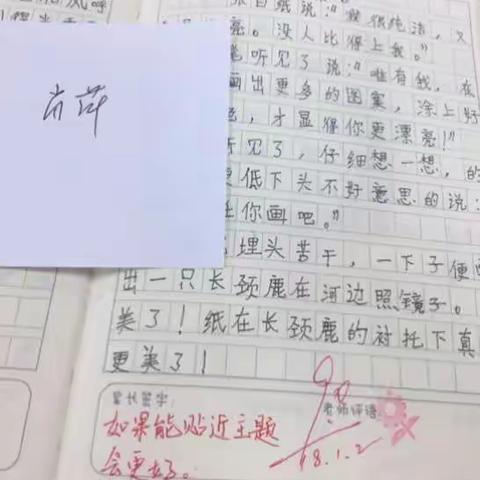 张白纸说：“我很纯洁，又
亮。没人比得上我。”
听见了说：“唯有我，在
画出更多的图案，涂上好
，才显得你更漂亮！”
听见了，仔细想一想，的
低下头不好意思的说：
你画吧。”
埋头苦干，一下子便
出一只长颈鹿在河边照镜子。
美了！纸在长颈鹿的衬托下真
更美了！
肖萍
家长签字：
老师评语
如果能贴近主题
会更好。
18.1.2